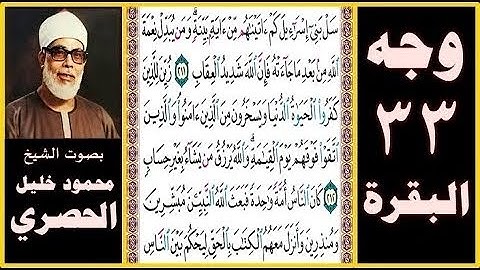 سَلْ بَنِىٓ إِسْرَٰٓءِيلَ كَمْ ءَاتَيْنَٰهُم مِّنْ ءَايَةٍۭ بَيِّنَةٍۗ وَمَن يُبَدِّلْ نِعْمَةَ
ٱللَّهِ مِنۢ بَعْدِ مَا جَآءَتْهُ فَإِنَّ ٱللَّهَ شَدِيدُ ٱلْعِقَابِ ٢١١ زُيِّنَ لِلَّذِينَ
كَفَرُوا۟ ٱلْحَيَوٰةُ ٱلدُّنْيَا وَيَسْخَرُونَ مِنَ ٱلَّذِينَ ءَامَنُوا۟ۘ وَٱلَّذِينَ
ٱتَّقَوْا۟ فَوْقَهُمْ يَوْمَ ٱلْقِيَٰمَةِۗ وَٱللَّهُ يَرْزُقُ مَن يَشَآءُ بِغَيْرِ حِسَابٍ
٢١٢ كَانَ ٱلنَّاسُ أُمَّةً وَٰحِدَةً فَبَعَثَ ٱللَّهُ ٱلنَّبِيِّـۧنَ مُبَشِّرِينَ
وَمُنذِرِينَ وَأَنزَلَ مَعَهُمُ ٱلْكِتَٰبَ بِٱلْحَقِّ لِيَحْكُمَ بَيْنَ ٱلنَّاسِ
وجه
٣٣
البقرة
بصوت الشيخ
محمود خليل
الحصري